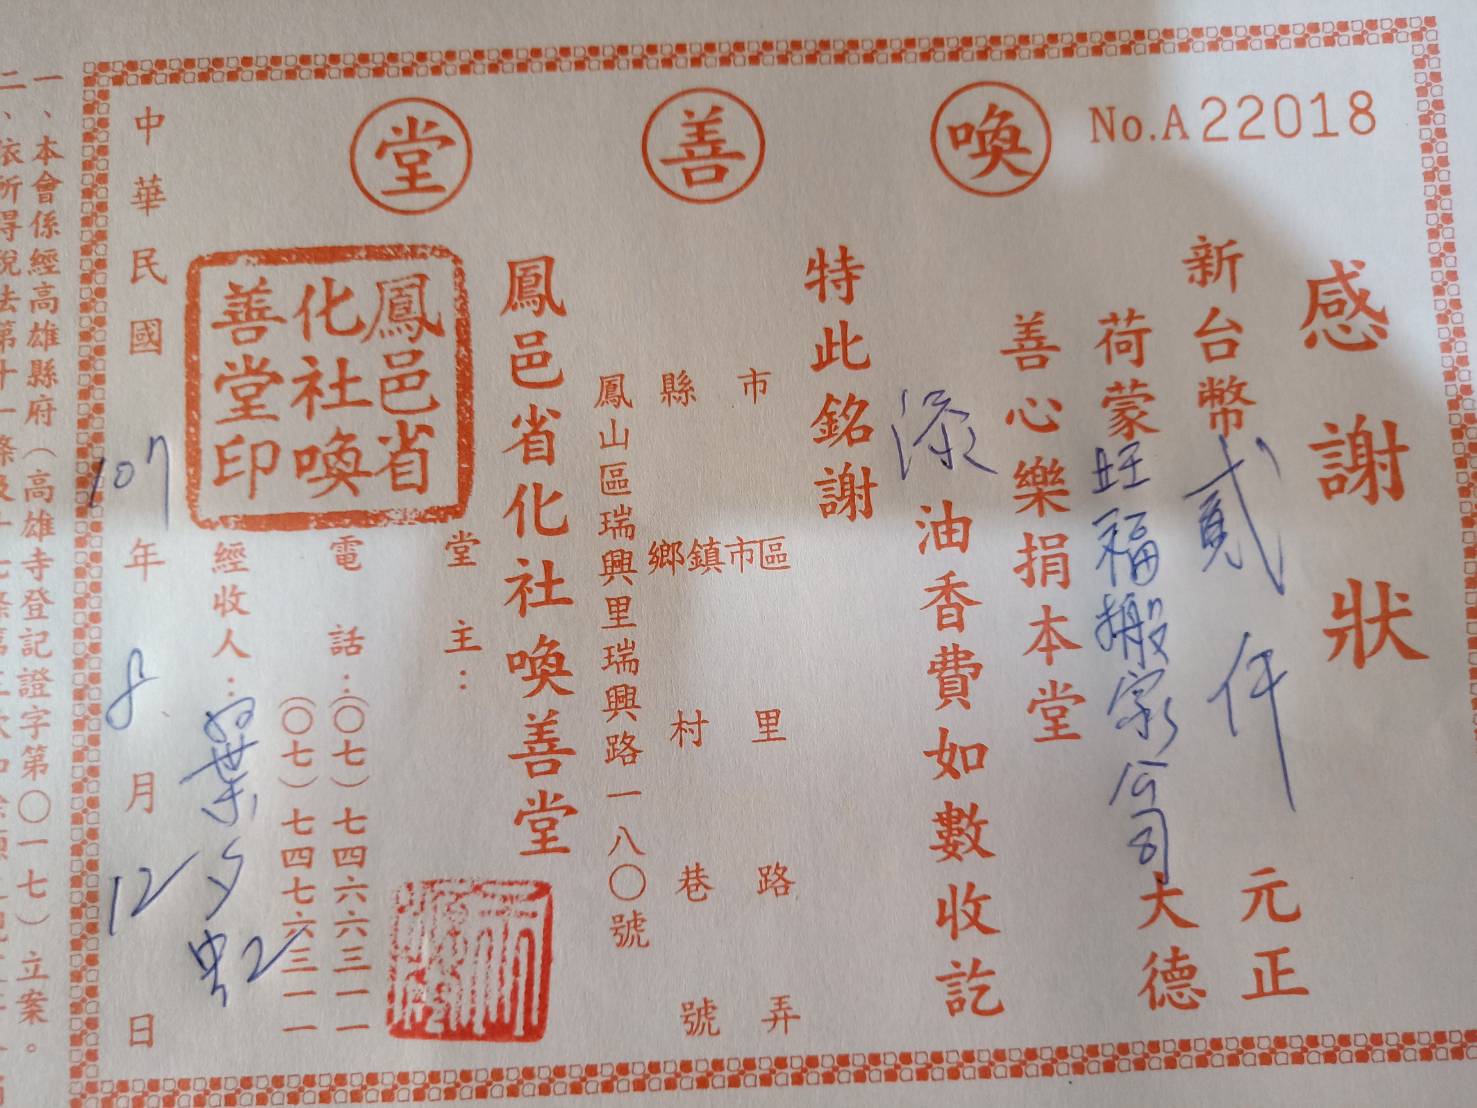 No.A22018
喚善堂
感謝狀
新台幣貳仟元正
荷蒙旺福搬家公司大德
善心樂捐本堂
添油香費如數收訖
特此銘謝
市區里路弄
縣鄉鎮市村巷號
鳳山區瑞興里瑞興路一八〇號
鳳邑省化社喚善堂
堂主：
鳳邑省
化社喚
善堂印
電話：(〇七)七四六六三一一
(〇七)七四七六三一一
經收人：葉
中華民國107年8月12日
一、本會係經高雄縣府(高雄寺登記證字第〇一七)立案。
二、依所得稅法第十一條及十七條第三款